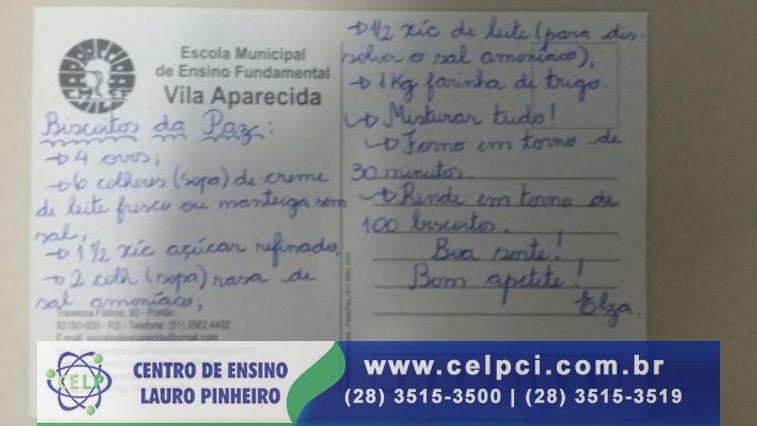 Escola Municipal
de Ensino Fundamental
Vila Aparecida
Biscoitos da Paz:
→ 4 ovos;
→ 6 colheres (sopa) de creme
de leite fresco ou manteiga sem
sal;
→ 1 1/2 xíc açúcar refinado;
→ 2 colh (sopa) rasa de
sal amoníaco;
Travessa Fátima, 80 - Portão
93180-000 - RS - Telefone: (51) 3562.4432
→ 1/2 xíc de leite (para dis-
solver o sal amoníaco);
→ 1 Kg farinha de trigo.
→ Misturar tudo!
→ Forno em torno de
30 minutos.
→ Rende em torno de
100 biscoitos.
Boa sorte!
Bom apetite!
Elza.
CELP
CENTRO DE ENSINO
LAURO PINHEIRO
www.celpci.com.br
(28) 3515-3500 | (28) 3515-3519